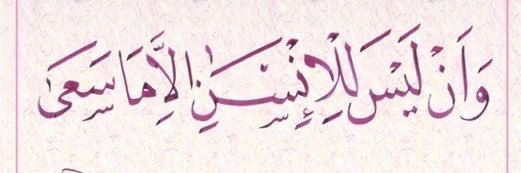 وَاَنْ لَيْسَ لِلْاِنْسٰنِ اِلَّا مَا سَعَىٰ